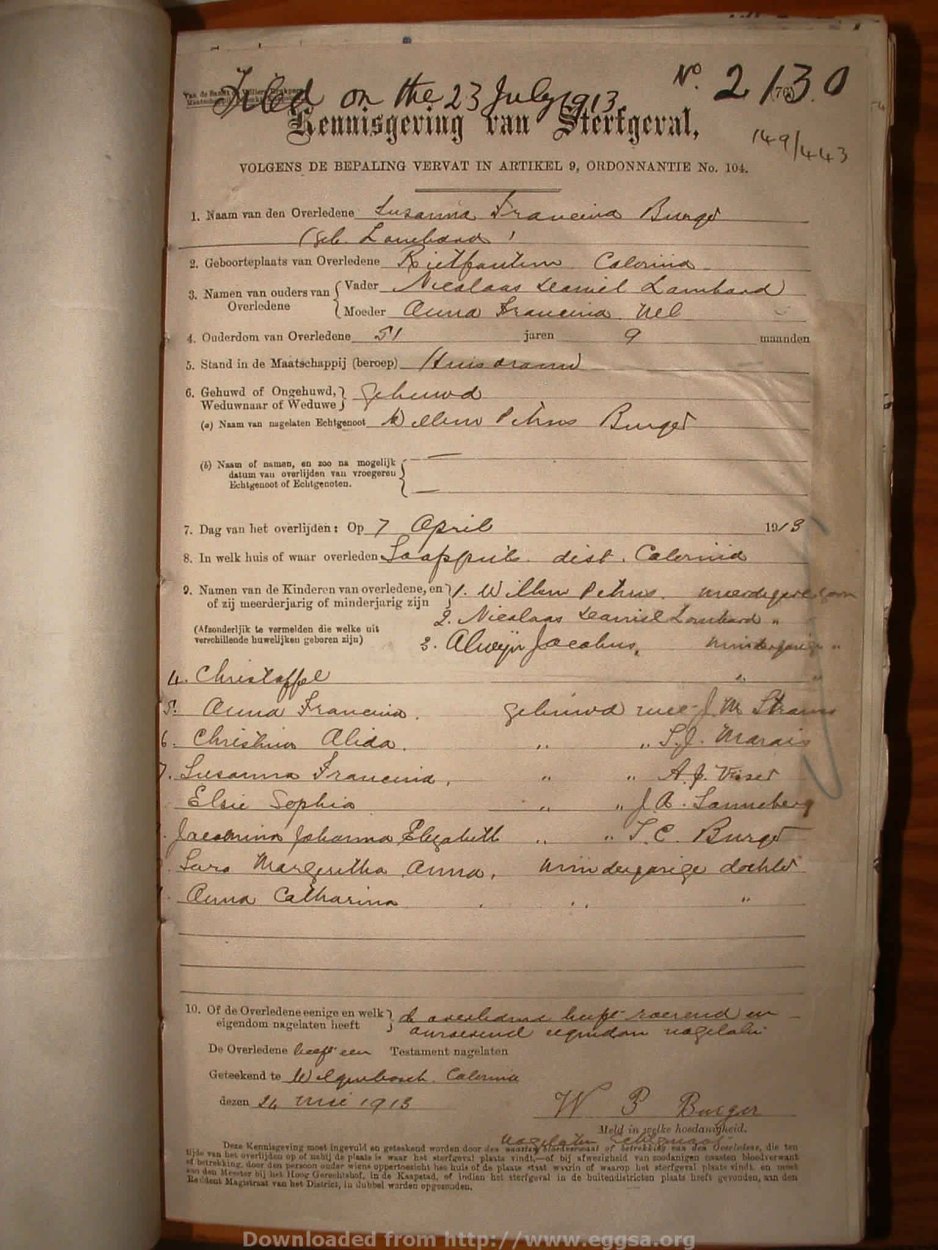 Filed on the 23 July 1913 No. 2130
Kennisgeving van Sterfgeval,
149/443
VOLGENS DE BEPALING VERVAT IN ARTIKEL 9, ORDONNANTIE No. 104.
1. Naam van den Overledene Susanna Francina Burger
(geb. Lombaard)
2. Geboorteplaats van Overledene Rietfontein Colesberg
3. Namen van ouders van Overledene { Vader Nicolaas Daniel Lombard
Moeder Anna Francina Nel
4. Ouderdom van Overledene 51 jaren 9 maanden
5. Stand in de Maatschappij (beroep) Huisvrouw
6. Gehuwd of Ongehuwd, Weduwnaar of Weduwe } Gehuwd
(a) Naam van nagelaten Echtgenoot Willem Petrus Burger
(b) Naam of namen, en zoo na mogelijk
datum van overlijden van vroegeren
Echtgenoot of Echtgenoten.
7. Dag van het overlijden: Op 7 April 1913
8. In welk huis of waar overleden dist.
9. Namen van de Kinderen van overledene, en 1. Willem Petrus. meerderjarel zoon
of zij meerderjarig of minderjarig zijn 2. Nicolaas Daniel Lombard " "
(Afzonderlijk te vermelden die welke uit
verschillende huwelijken geboren zijn) 3. Alweijn Jacobus, minderjarige "
4. Christoffel " "
5. Anna Francina. gehuwd met J. M. Strauss
6. Christina Alida. " " S. J. Marais
7. Susanna Francina, " " A. J. Visser
Elsie Sophia " " J A.
Jacomina Johanna Elizabeth " " S. C. Burger
Sara Margretha Anna, minderjarige dochter
Anna Catharina " "
10. Of de Overledene eenige en welk } de overledene heeft roerend en
eigendom nagelaten heeft onroerend eigendom nagelaten
De Overledene heeft een Testament nagelaten
Geteekend te Wilgenbosch.
dezen 24 Mei 1913
W P Burger
Meld in welke hoedanigheid.
nagelaten Echtgenoot
Deze Kennisgeving moet ingevuld en geteekend worden door den naasten bloedverwant of betrekking van den Overledene, die ten
tijde van het overlijden op of nabij de plaats is waar het sterfgeval plaats vindt,—of bij afwezigheid van zoodanigen naasten bloedverwant
of betrekking, door den persoon onder wiens oppertoezicht het huis of de plaats staat waarin of waarop het sterfgeval plaats vindt, en moet
aan den Meester bij het Hoog Gerechtshof, in de Kaapstad, of indien het sterfgeval in de buitendistricten plaats heeft gevonden, aan den
Resident Magistraat van het District, in dubbel worden opgezonden.
Downloaded from http://www.eggsa.org